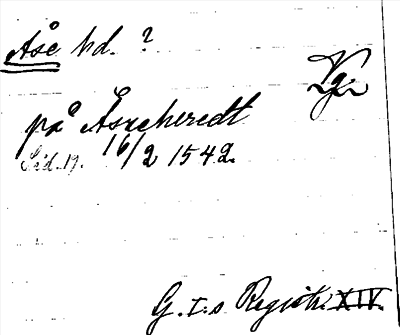 Åse hd. ?
Vg.
på Åsæheredt
16/2 1542.
G. I. s Registr. XIV.